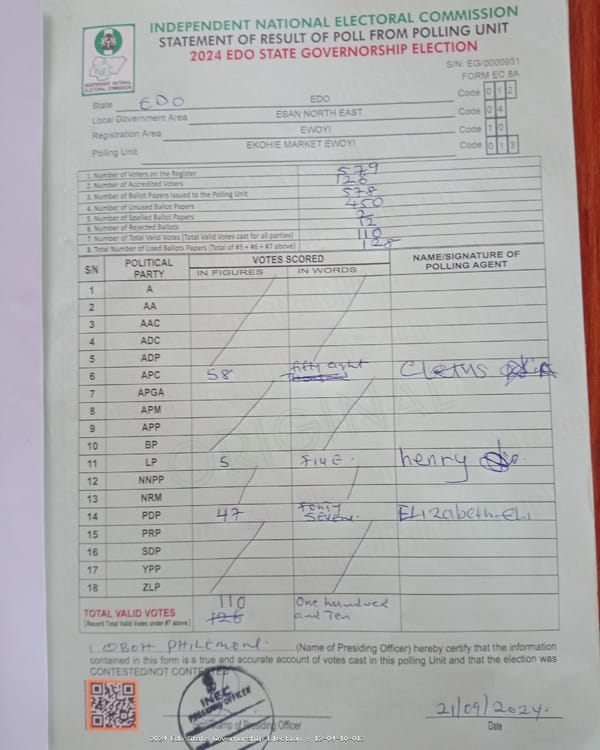 INDEPENDENT NATIONAL ELECTORAL COMMISSION
STATEMENT OF RESULT OF POLL FROM POLLING UNIT
2024 EDO STATE GOVERNORSHIP ELECTION
INDEPENDENT NATIONAL ELECTORAL COMMISSION
S/N: EG/0000951
FORM EC 8A
State EDO EDO Code 0 1 2
Local Government Area ESAN NORTH EAST Code 0 4
Registration Area EWOYI Code 1 0
Polling Unit EKOHIE MARKET EWOYI Code 0 1 3
1. Number of Voters on the Register 579
2. Number of Accredited Voters 128
3. Number of Ballot Papers Issued to the Polling Unit 578
4. Number of Unused Ballot Papers 450
5. Number of Spoiled Ballot Papers
6. Number of Rejected Ballots 12
7. Number of Total Valid Votes (Total Valid Votes cast for all parties) 110
8. Total Number of Used Ballots Papers (Total of #5 + #6 + #7 above) 128
S/N POLITICAL PARTY VOTES SCORED NAME/SIGNATURE OF POLLING AGENT
IN FIGURES IN WORDS
1 A
2 AA
3 AAC
4 ADC
5 ADP
6 APC 58 fifty eight Cletus
7 APGA
8 APM
9 APP
10 BP
ORIGINAL
11 LP 5 FIVE. henry
12 NNPP
13 NRM
14 PDP 47 Fourty Seven. ELIzabeth-EL.
15 PRP
16 SDP
17 YPP
18 ZLP
TOTAL VALID VOTES 110 One hundred
(Record Total Valid Votes under #7 above) 128 and Ten
I, OBOH PHILEMON. (Name of Presiding Officer) hereby certify that the information
contained in this form is a true and accurate account of votes cast in this polling Unit and that the election was
CONTESTED/NOT CONTESTED
INEC
PRESIDING OFFICER
Stamp of Presiding Officer
21/09/2024.
Date
2024 Edo State Governorship Election - 12-04-10-013